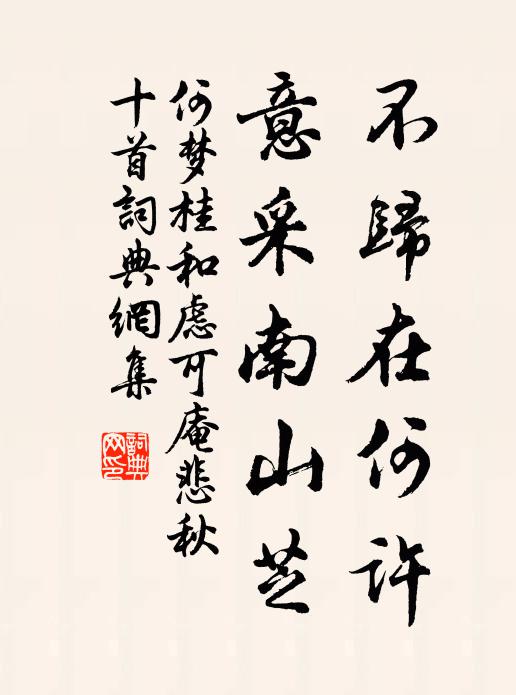 不歸在何許
意采南山芝
何梦桂和虑可庵悲秋
十首詞典網集
詞典
网印